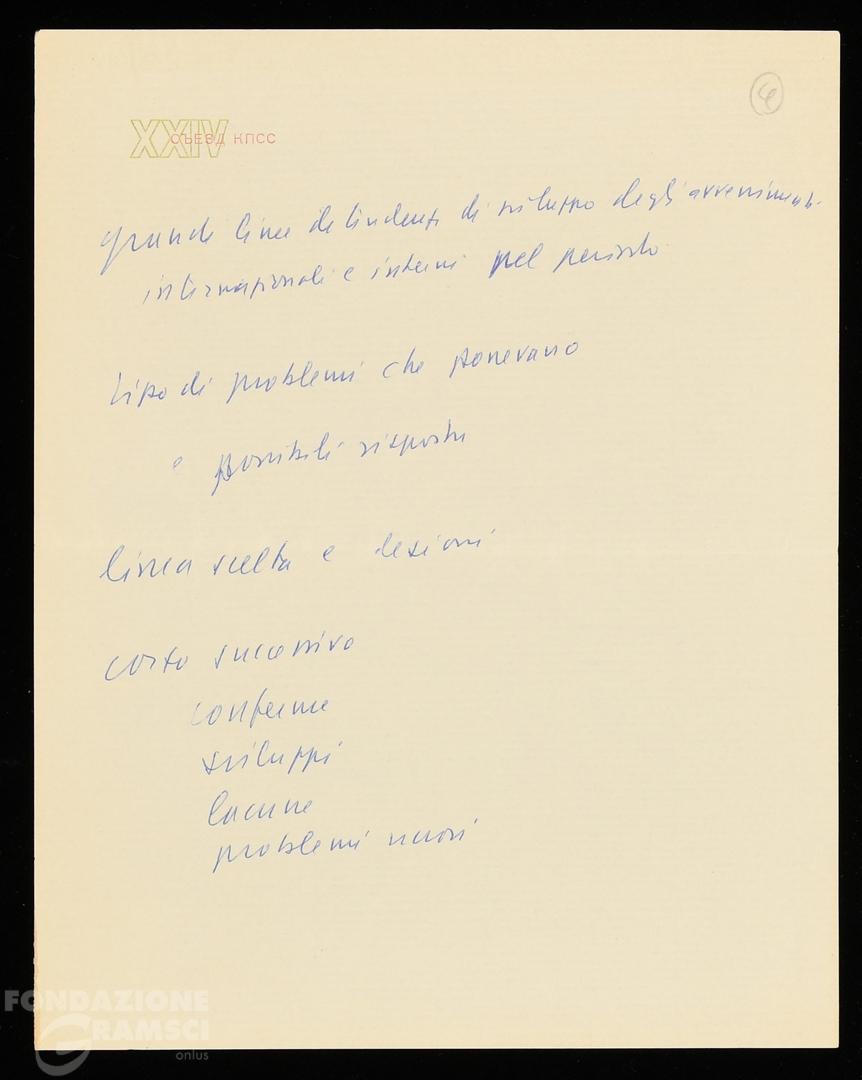 4
XXIV СЪЕЗД КПСС
grandi linee di tendenza di sviluppo degli avvenimenti
internazionali e interni nel periodo
tipo di problemi che ponevano
e possibili risposte
linea scelta e lezioni
corso successivo
conferme
sviluppi
lacune
problemi nuovi
FONDAZIONE
GRAMSCI
onlus